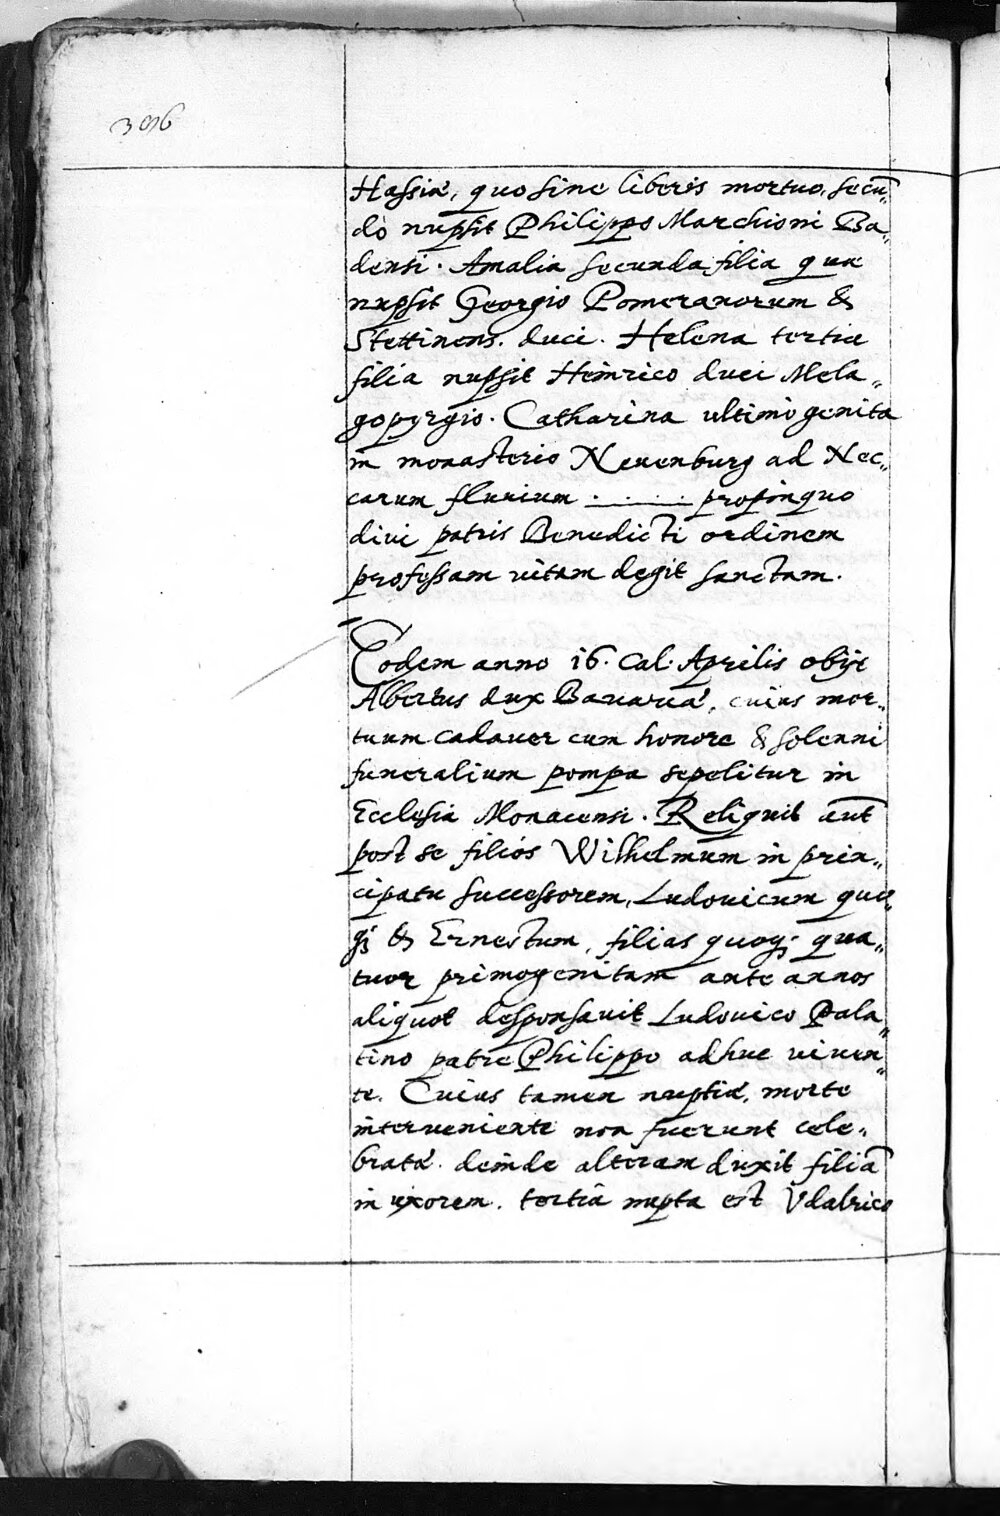 396
Hassiæ, quo sine liberis mortuo, secū„
dò nupsit Philippo Marchioni Ba„
densi. Amalia secunda filia quæ
nupsit Georgio Pomeranorum &
Stettinens. duci. Helena tertia
filia nupsit Heinrico duci Mela„
gopyrgio. Catharina ultimo genita
in monasterio Neuenburg ad Nec„
carum fluuium . . . . . propinquo
diui patris Benedicti ordinem
professam uitam degit sanctam.
Eodem anno 16. Cal. Aprilis obijt
Albertus dux Bauariæ, cuius mor„
tuum cadauer cum honore & solenni
funeralium pompa sepelitur in
Ecclesia Monacensi. Reliquit aūt
post se filiós Wilhelmum in prin„
cipatu successorem, Ludouicum quo„
q; & Ernestum, filias quoq; qua„
tuor primogenitam ante annos
aliquot desponsauit Ludouico Pala„
tino patre Philippo adhuc uiuen„
te. Cuius tamen nuptiæ, morte
interueniente non fuerunt cele„
bratæ. deinde alteram duxit filiā
in uxorem. tertia nupta est Vdalrico